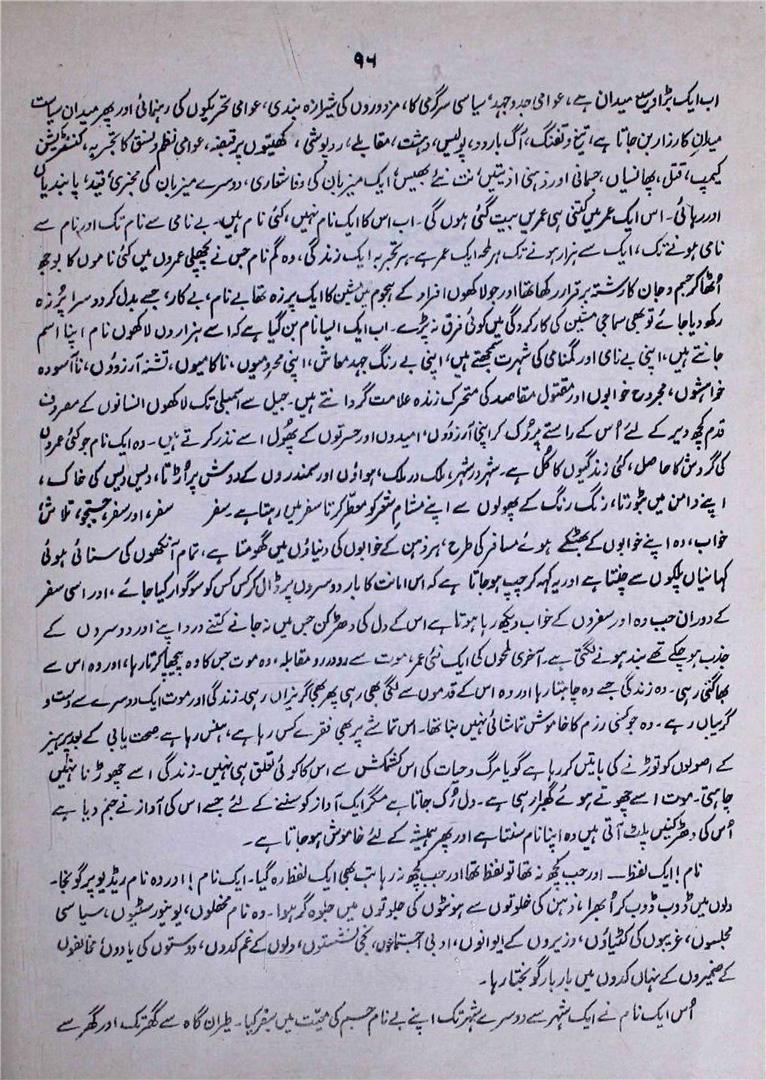 ۹۶
اب ایک بڑا وسیع میدان ہے، عوامی جدوجہد، سیاسی سرگرمی کا، مزدوروں کی شیرازہ بندی، عوامی تحریکوں کی رہنمائی اور پھر میدان سیاست
میدانِ کارزار بن جاتا ہے، تیغ و تفنگ، آگ بارود، پولیس، دہشت، مقابلے، روپوشی، کھیتوں پر قبضہ، عوامی نظم و نسق کا تجربہ، کنسنٹریشن
کیمپ، قتل، پھانسیاں، جسمانی اور ذہنی اذیتیں، نت نئے بھیس، ایک میزبان کی وفا شعاری، دوسرے میزبان کی مخبری، قید، پابندیاں
اور رہائی۔ اس ایک عمر میں کتنی ہی عمریں بیت گئی ہوں گی۔ اب اس کا ایک نام نہیں، کئی نام ہیں۔ بے نامی سے نام تک اور نام سے
نامی ہونے تک، ایک سے ہزار ہونے تک ہر لمحہ ایک عمر ہے۔ ہر تجربہ ایک زندگی، وہ گم نام جس نے پچھلی عمروں میں کئی ناموں کا بوجھ
اُٹھا کر جسم و جان کا رشتہ برقرار رکھا تھا اور جو لاکھوں افراد کے ہجوم میں مشین کا ایک پرزہ تھا بے نام، بے کار، جسے بدل کر دوسرا پُرزہ
رکھ دیا جائے تو بھی سماجی مشین کی کارکردگی میں کوئی فرق نہ پڑے۔ اب ایک ایسا نام بن گیا ہے کہ اسے ہزاروں لاکھوں نام اپنا اسم
جانتے ہیں، اپنی بے نامی اور گمنامی کی شہرت سمجھتے ہیں، اپنی بے رنگ جہد معاش، اپنی محرومیوں، ناکامیوں، تشنہ آرزوؤں، ناآسودہ
خواہشوں، مجروح خوابوں اور مقتول مقاصد کی متحرک زندہ علامت گردانتے ہیں۔ جیل سے اسمبلی تک لاکھوں انسانوں کے مصروف
قدم کچھ دیر کے لئے اُس کے راستے پر رُک کر اپنی آرزوؤں، امیدوں اور حسرتوں کے پھول اسے نذر کرتے ہیں۔ وہ ایک نام جو کئی عمروں
کی گردش کا حاصل، کئی زندگیوں کا کُل ہے۔ شہر در شہر، ملک در ملک، ہواؤں اور سمندروں کے دوش پر اُڑتا، دیس دیس کی خاک،
اپنے دامن میں بٹورتا، رنگ رنگ کے پھولوں سے اپنے مشامِ شعر کو معطر کرتا سفر میں رہتا ہے۔ سفر سفر، اور سفر، جستجو، تلاش
خواب، وہ اپنے خوابوں کے بھٹکے ہوئے مسافر کی طرح، ہر ذہن کے خوابوں کی دنیاؤں میں گھومتا ہے، تمام آنکھوں کی سنائی ہوئی
کہانیاں پلکوں سے چنتا ہے اور یہ کہہ کر چپ ہو جاتا ہے کہ اس امانت کا بار دوسروں پر ڈال کر کس کس کو سوگوار کیا جائے، اور اسی سفر
کے دوران جب وہ اور سفروں کے خواب دیکھ رہا ہوتا ہے اس کے دل کی دھڑکن جس میں نہ جانے کتنے درد اپنے اور دوسروں کے
جذب ہو چکے تھے بند ہونے لگتی ہے۔ آخری لمحوں کی ایک نئی عمر، موت سے دو در دو مقابلہ، وہ موت جس کا وہ پیچھا کرتا رہا، اور وہ اس سے
بھاگتی رہی۔ وہ زندگی جسے وہ چاہتا رہا اور وہ اس کے قدموں سے لگی بھی رہی پھر بھی گریزاں رہی۔ زندگی اور موت ایک دوسرے سے دست و
گریباں رہے۔ وہ جو کسی رزم کا خاموش تماشائی نہیں بنا تھا۔ اس تماشے پر بھی فقرے کس رہا ہے، ہنس رہا ہے۔ صحت یابی کے بعد پرہیز
کے اصولوں کو توڑنے کی باتیں کر رہا ہے گویا مرگ و حیات کی اس کشمکش سے اس کا کوئی تعلق ہی نہیں۔ زندگی اسے چھوڑنا نہیں
چاہتی۔ موت اسے چھوتے ہوئے گھبرا رہی ہے۔ دل رُک جاتا ہے مگر ایک آواز کو سننے کے لئے جسے اس کی آواز نے جنم دیا ہے
اُس کی دھڑکنیں پلٹ آتی ہیں وہ اپنا نام سنتا ہے اور پھر ہمیشہ کے لئے خاموش ہو جاتا ہے۔
نام! ایک لفظ ــ اور جب کچھ نہ تھا تو لفظ تھا اور جب کچھ نہ رہا تب بھی ایک لفظ رہ گیا۔ ایک نام! اور وہ نام ریڈیو پر گونجا۔
دلوں میں ڈوب ڈوب کر اُبھرا، ذہن کی خلوتوں سے ہونٹوں کی جلوتوں میں جلوہ گر ہوا۔ وہ نام محفلوں، یونیورسٹیوں، سیاسی
مجلسوں، غریبوں کی کٹیاؤں، وزیروں کے ایوانوں، ادبی اجتماعوں، نجی نشستوں، دلوں کے غم کدوں، دوستوں کی یادوں، مخالفوں
کے ضمیروں کے نہاں کدوں میں بار بار گونجتا رہا۔
اُس ایک نام نے ایک شہر سے دوسرے شہر تک اپنے بے نام جسم کی معیت میں سفر کیا۔ طیران گاہ سے گھر تک اور گھر سے